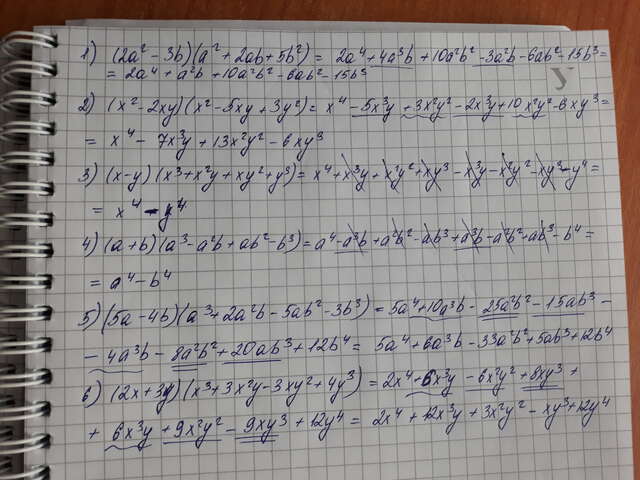 1) (2a² - 3b)(a² + 2ab + 5b²) = 2a⁴ + 4a³b + 10a²b² - 3a²b - 6ab² - 15b³ =
= 2a⁴ + a²b + 10a²b² - 6ab² - 15b³
2) (x² - 2xy)(x² - 5xy + 3y²) = x⁴ - 5x³y + 3x²y² - 2x³y + 10x²y² - 6xy³ =
= x⁴ - 7x³y + 13x²y² - 6xy³
3) (x-y)(x³ + x²y + xy² + y³) = x⁴ + x³y + x²y² + xy³ - x³y - x²y² - xy³ - y⁴ =
= x⁴ - y⁴
4) (a+b)(a³ - a²b + ab² - b³) = a⁴ - a³b + a²b² - ab³ + a³b - a²b² + ab³ - b⁴ =
= a⁴ - b⁴
5) (5a - 4b)(a³ + 2a²b - 5ab² - 3b³) = 5a⁴ + 10a³b - 25a²b² - 15ab³ -
- 4a³b - 8a²b² + 20ab³ + 12b⁴ = 5a⁴ + 6a³b - 33a²b² + 5ab³ + 12b⁴
6) (2x + 3y)(x³ + 3x²y - 3xy² + 4y³) = 2x⁴ + 6x³y - 6x²y² + 8xy³ +
+ 6x³y + 9x²y² - 9xy³ + 12y⁴ = 2x⁴ + 12x³y + 3x²y² - xy³ + 12y⁴